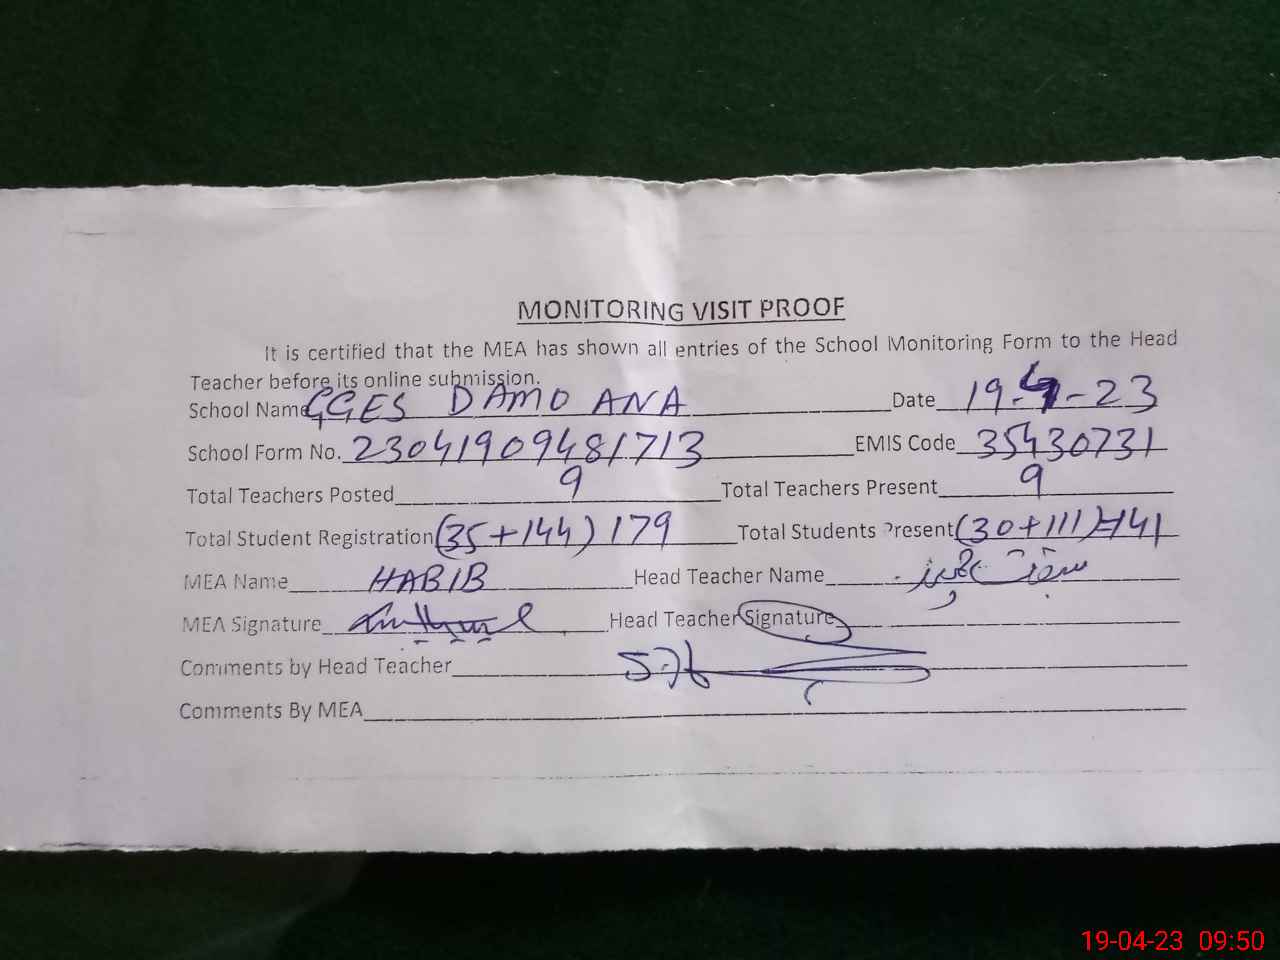 MONITORING VISIT PROOF
It is certified that the MEA has shown all entries of the School Monitoring Form to the Head
Teacher before its online submission.
School Name GGES DAMOANA Date 19-4-23
School Form No. 23041909481713 EMIS Code 35430731
Total Teachers Posted 9 Total Teachers Present 9
Total Student Registration (35+144) 179 Total Students Present (30+111)=141
MEA Name HABIB Head Teacher Name
MEA Signature Head Teacher Signature
Comments by Head Teacher
Comments By MEA
19-04-23 09:50